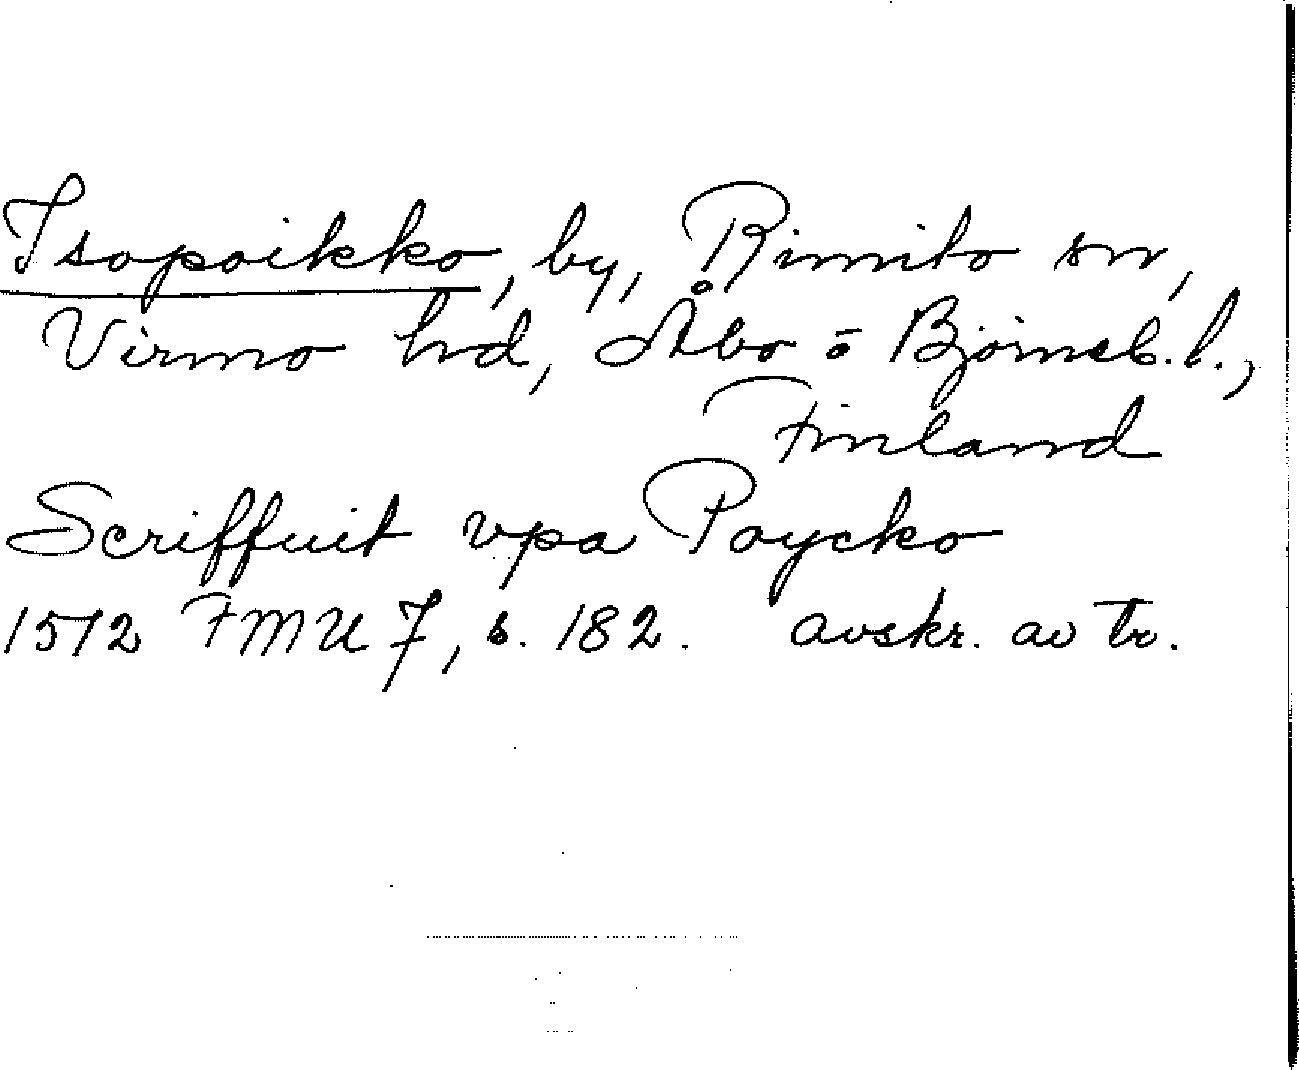 Isopoikko, by, Rimito sn,
Virmo hd, Åbo o Björneb. l.,
Finland
Scriffuit vpa Poycko
1512 FMU 7, s. 182. avskr. av tr.